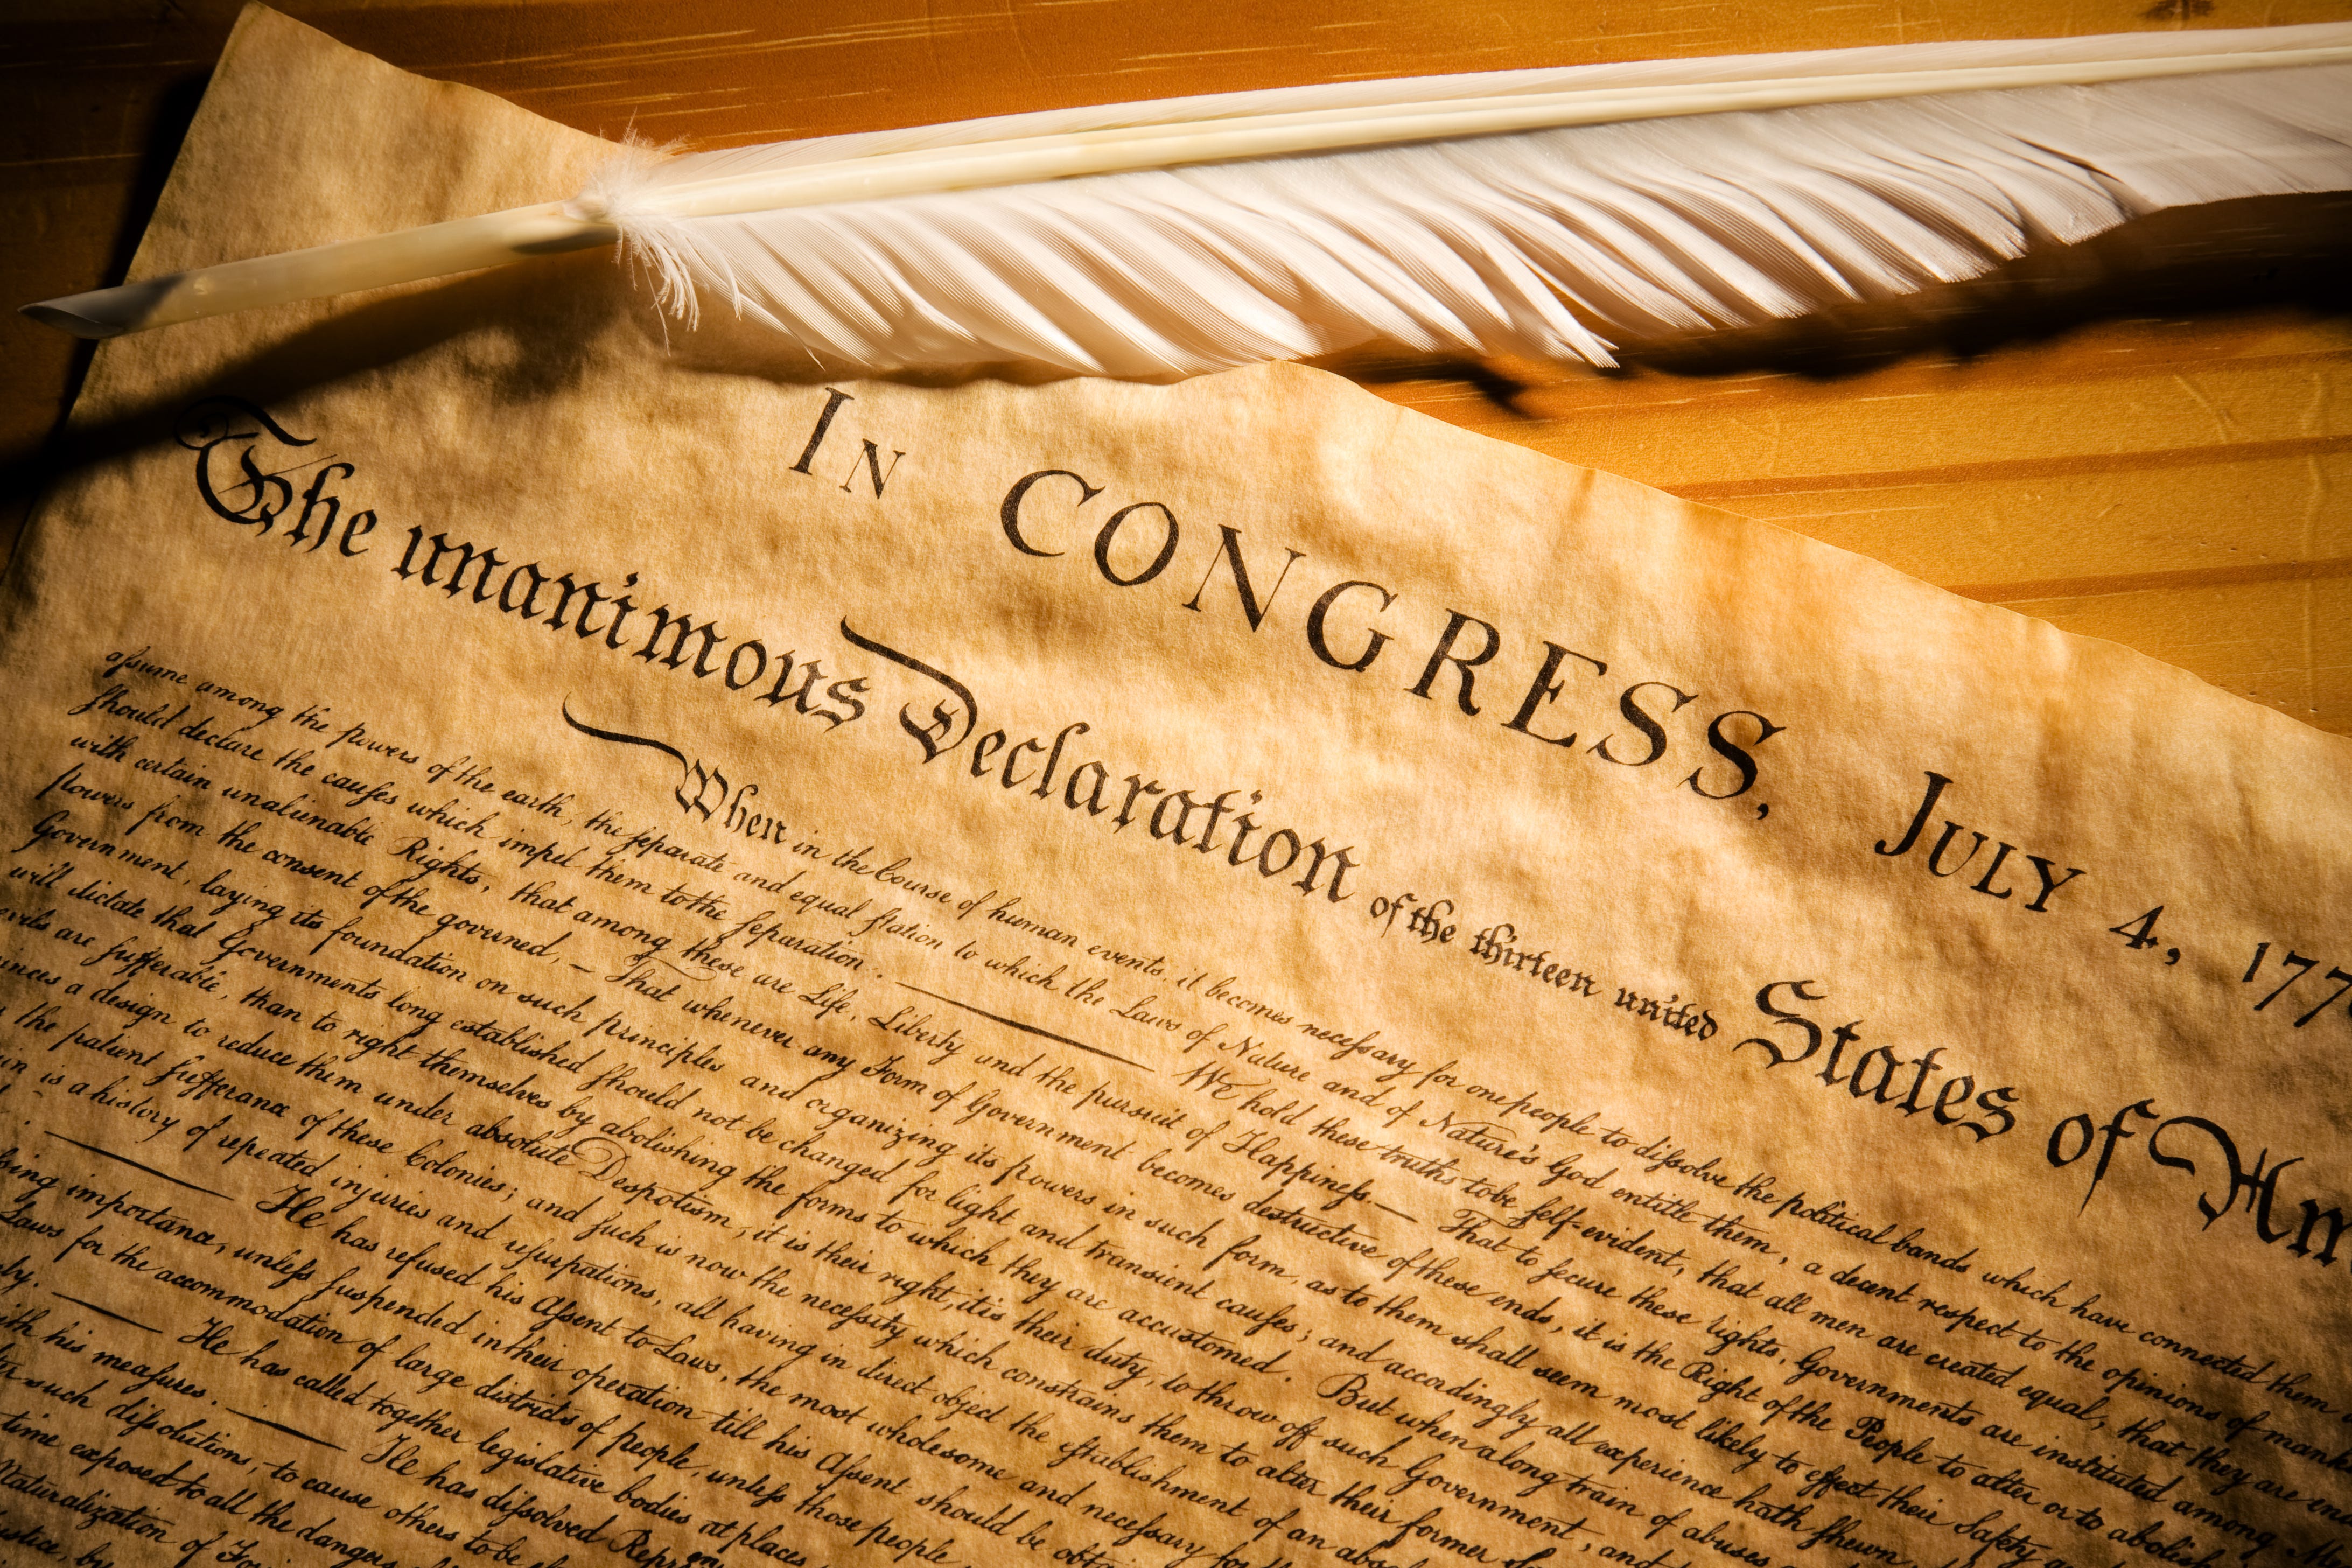 In CONGRESS, July 4, 177
The unanimous Declaration of the thirteen united States of Am
When in the Course of human events, it becomes necessary for one people to dissolve the political bands which have connected them
assume among the powers of the earth, the separate and equal station to which the Laws of Nature and of Nature's God entitle them, a decent respect to the opinions of mank
should declare the causes which impel them to the separation. ——— We hold these truths to be self-evident, that all men are created equal, that they are en
with certain unalienable Rights, that among these are Life, Liberty and the pursuit of Happiness.— That to secure these rights, Governments are instituted among
powers from the consent of the governed, — That whenever any Form of Government becomes destructive of these ends, it is the Right of the People to alter or to aboli
Government, laying its foundation on such principles and organizing its powers in such form, as to them shall seem most likely to effect their Safety
will dictate that Governments long established should not be changed for light and transient causes; and accordingly all experience hath shewn
evils are sufferable, than to right themselves by abolishing the forms to which they are accustomed. But when a long train of abuses
inces a design to reduce them under absolute Despotism, it is their right, it is their duty, to throw off such Government, and
the patient sufferance of these Colonies; and such is now the necessity which constrains them to alter their former
in is a history of repeated injuries and usurpations, all having in direct object the establishment of an abso
——— He has refused his Assent to Laws, the most wholesome and necessary for
sing importance, unless suspended in their operation till his Assent should be obta
Laws for the accommodation of large districts of people, unless those people
ly. ——— He has called together legislative bodies at places
ith his measures. ——— He has dissolved Repre
such dissolutions, to cause others to be
time exposed to all the dangers
Naturalization of For
ustice, by